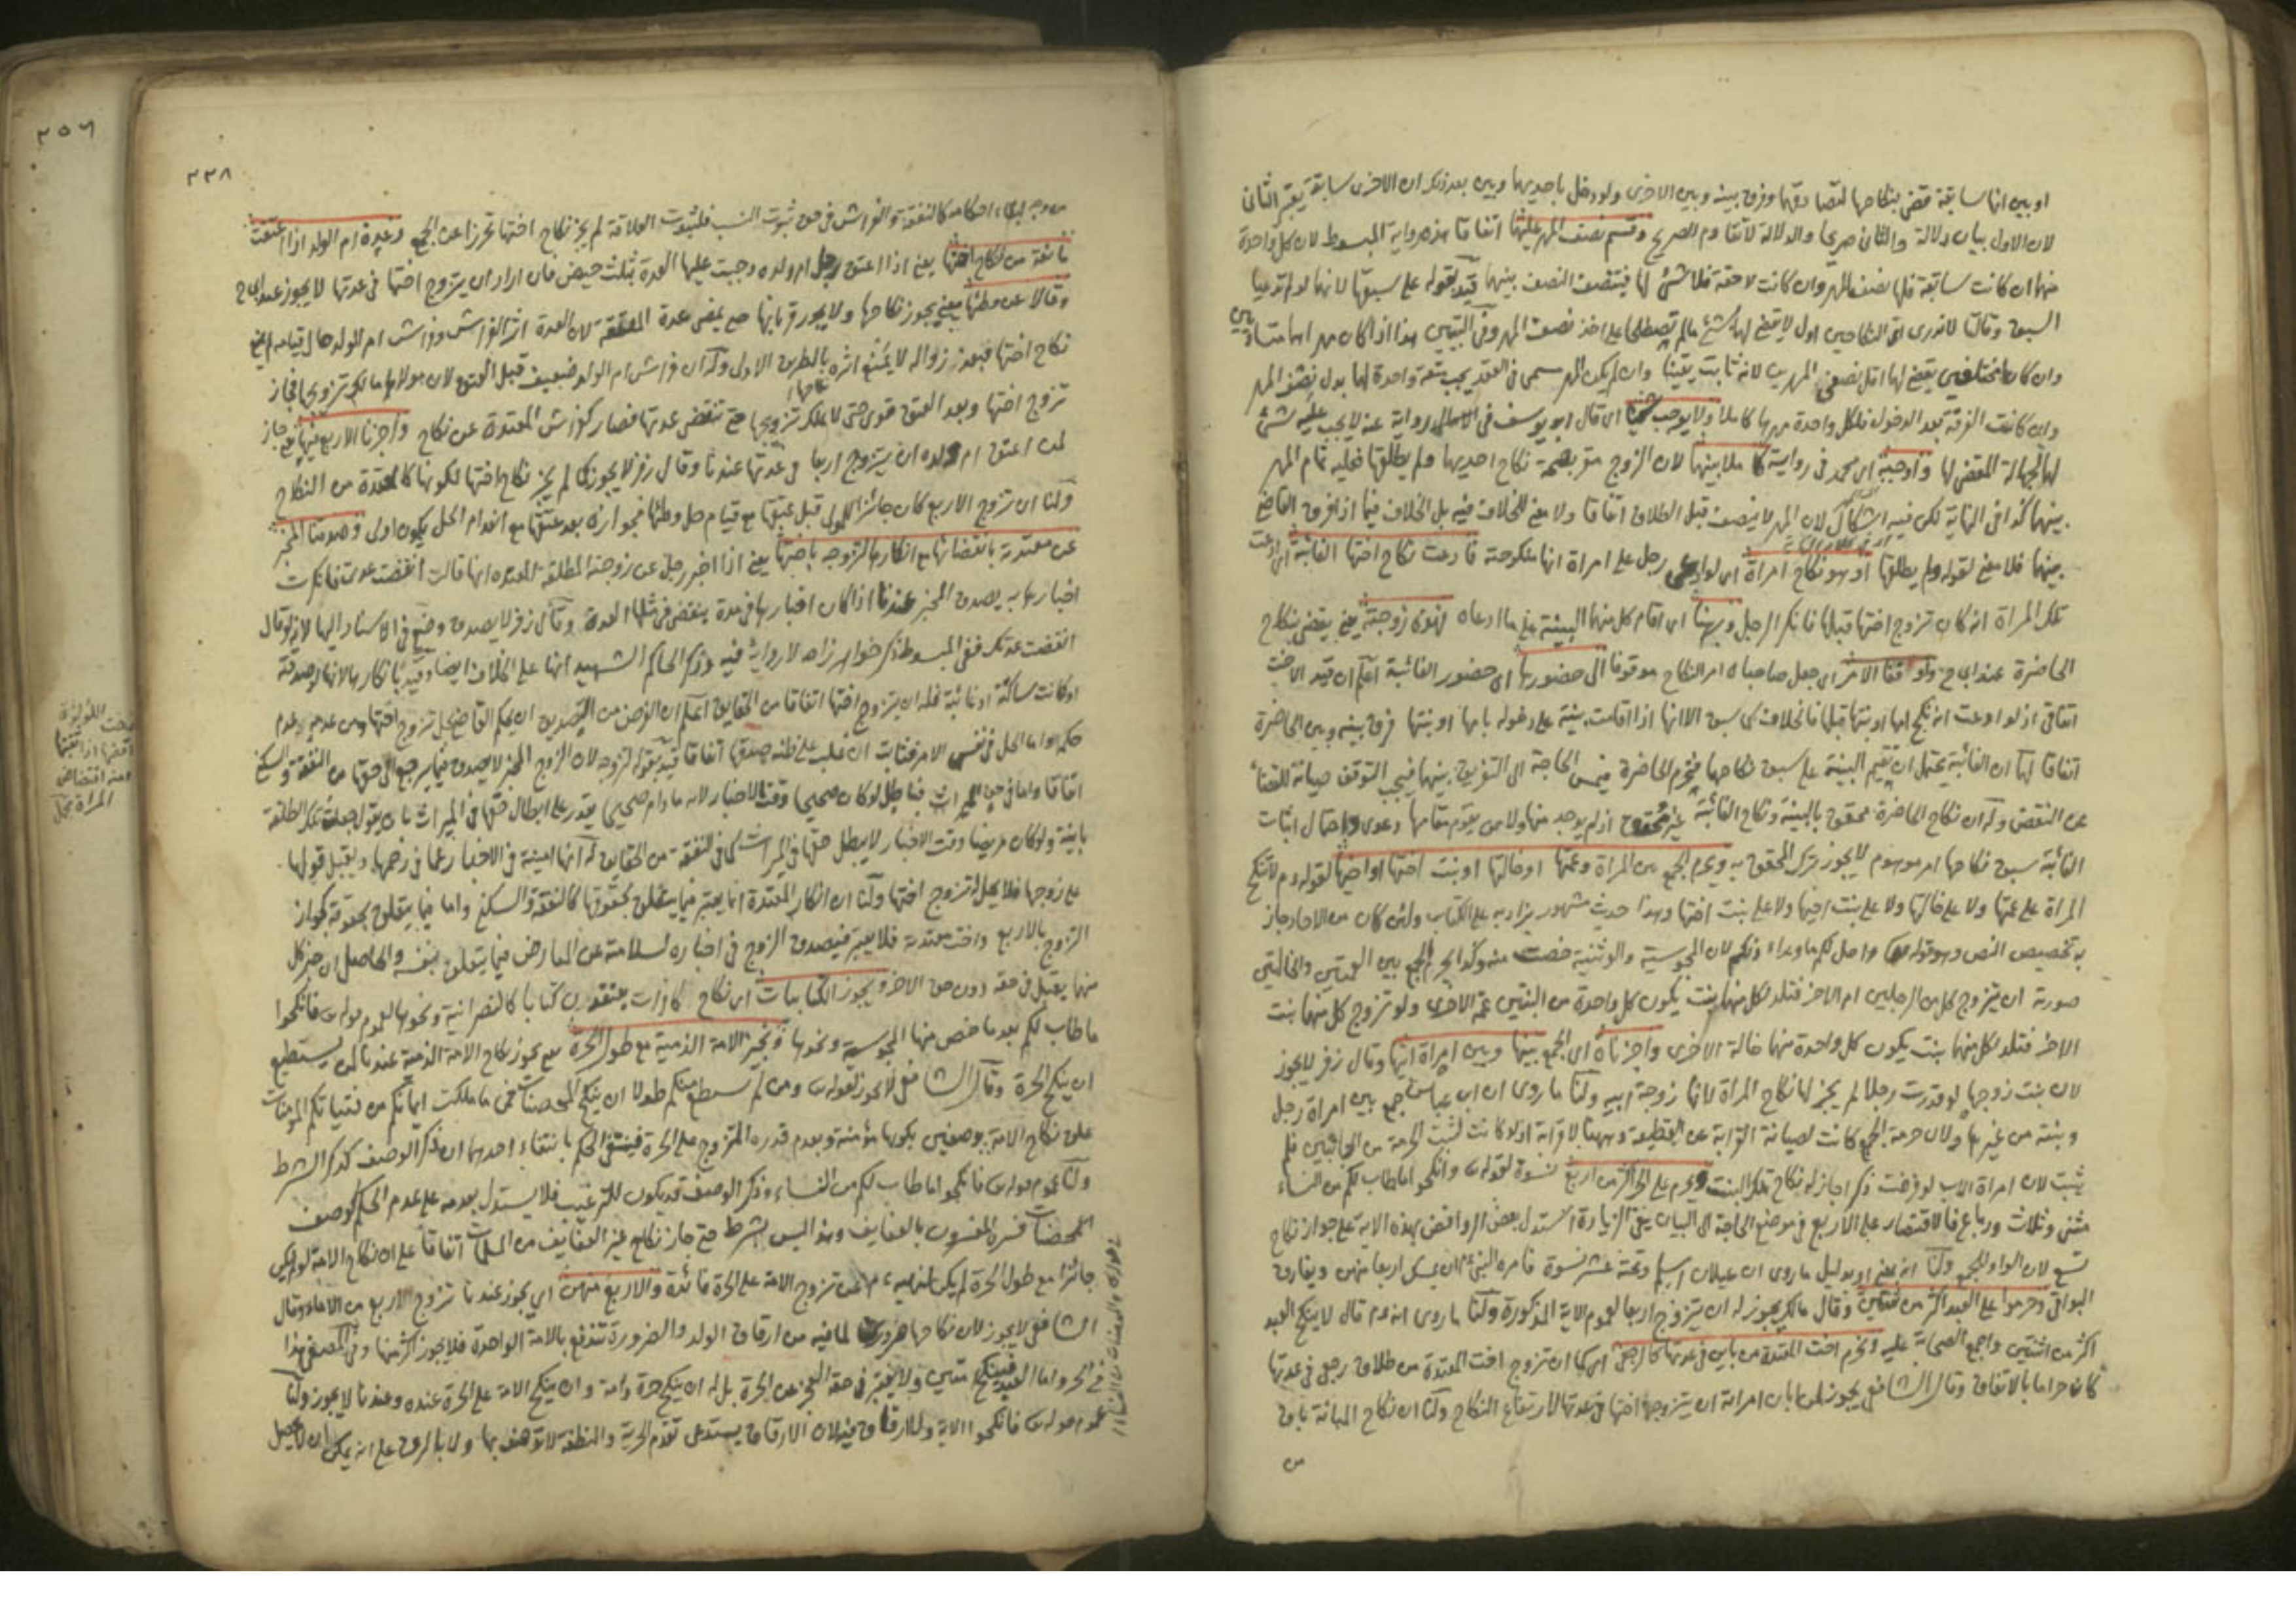 او بين انها سابقة قضى بنكاحها لتصادقهما وفرق بينه وبين الاخرى ولو دخل باحديهما وبين بعد ذلك ان الاخرى سابقة يعتبر الثانى
لان الاول بيان دلالة والثانى صريحا والدلالة لا تقاوم الصريح وقسم نصف المهر عليهما اتفاقا هذه رواية المبسوط لان كل واحدة
منهما ان كانت سابقة فلها نصف المهر وان كانت لاحقة فلا شئ لها فينتصف النصف بينهما قيد بقوله على سبقها لانهما لو لم تدعيا
السبق وقالتا لا ندرى اى النكاحين اول لا يقضى لهما بشئ مالم تصطلحا على اخذ نصف المهر وفى التبيين هذا اذا كان مهراهما متساويين
وان كانا مختلفين يقضى لهما اقل نصفى المهرين لانه ثابت يقينا وان لم يكن المهر مسمى فى العقد يجب متعة واحدة لهما بدل نصف المهر
وان كانت الفرقة بعد الدخول فلكل واحدة مهرها كاملا ولا يوجب شيئا اى قال ابو يوسف فى الامالى رواية عنه لا يجب عليه شئ
لهما لجهالة المقضى لها واوجبه اى محمد فى رواية كاملا بينهما لان الزوج مقر بصحة نكاح احديهما ولم يطلقها فعليه تمام المهر
بينهما كذا فى النهاية لكن فيه اشكال لان المهر لا ينصف قبل الطلاق اتفاقا ولا معنى للخلاف فيه بل الخلاف فيما اذا فرق القاضى
بينهما فلا معنى لقوله ولم يطلقها او هو نكاح امراة اى لو ادعى رجل على امراة انها منكوحته فادعت نكاح اختها الغائبة اى ادعت
تلك المراة انه كان تزوج اختها قبلها فانكر الرجل وبرهنا اى اقام كل منهما البينة على ما ادعاه فهذه زوجته يعنى يقضى بنكاح
الحاضرة عند ابى ح ولو اقفا الامر اى جعل صاحباه امر النكاح موقوفا الى حضورها اى حضور الغائبة اعلم ان قيد الاخت
اتفاقى اذ لو ادعت انه نكح امها او بنتها قبلها فالخلاف كما سبق الا انها اذا اقامت بينة على دخوله بامها او بنتها فرق بينه وبين الحاضرة
اتفاقا لهما ان الغائبة يحتمل ان تقيم البينة على سبق نكاحها فيحرم الحاضرة فيمس الحاجة الى التفريق بينهما فيجب التوقف صيانة للقضاء
عن النقض وله ان نكاح الحاضرة محقق بالبينة ونكاح الغائبة غير محقق اذ لم يوجد منها ولا من يقوم مقامها دعوى واحتمال اثبات
الغائبة سبق نكاحها امر موهوم لا يجوز ترك المحقق به ويحرم الجمع بين المراة وعمتها او خالتها او بنت اختها او اخيها لقوله ءم لا تنكح
المراة على عمتها ولا على خالتها ولا على بنت اخيها ولا على بنت اختها وهذا حديث مشهور يزاد به على الكتاب ولئن كان من الاحاد جاز
به تخصيص النص وهو قوله تعا واحل لكم ما وراء ذلكم لان المجوسية والوثنية خصت منه وكذا يحرم الجمع بين العمتين والخالتين
صورته ان يتزوج كل من الرجلين ام الاخر فتلد لكل منهما بنت يكون كل واحدة من البنتين عمة الاخرى ولو تزوج كل منهما بنت
الاخر فتلد لكل منهما بنت يكون كل واحدة منهما خالة الاخرى واجزناه اى الجمع بينها وبين امراة ابيها وقال زفر لا يجوز
لان بنت زوجها لو قدرت رجلا لم يجز لها نكاح المراة لانها زوجة ابيه ولنا ما روى ان ابن عباس جمع بين امراة رجل
وبنته من غيرها ولان حرمة الجمع كانت لصيانة القرابة عن القطيعة وههنا لا قرابة اذ لو كانت لثبت الحرمة من الجانبين فلم
يثبت لان امراة الاب لو فرضت ذكرا جاز له نكاح تلك البنت ويحرم على الحر اكثر من اربع نسوة لقوله ت وانكحوا ما طاب لكم من النساء
مثنى وثلاث ورباع فالاقتصار على الاربع فى موضع الحاجة الى البيان ينفى الزيادة استدل بعض الروافض بهذه الاية على جواز نكاح
تسع لان الواو للجمع ولنا انه بمعنى او بدليل ما روى ان غيلان اسلم وتحته عشر نسوة فامره النبى ءم ان يمسك اربعا منهن ويفارق
البواقى وحرموا على العبد اكثر من ثنتين وقال مالك يجوز له ان يتزوج اربعا لعموم الاية المذكورة ولنا ما روى انه ءم قال لا ينكح العبد
اكثر من اثنتين واجمع الصحابة عليه ونحرم اخت المعتدة من باين فى عدتها كالرجعى اى كما ان تزوج اخت المعتدة من طلاق رجعى فى عدتها
كان حراما بالاتفاق وقال الشافعى يجوز لمن ابان امراته ان يتزوج اختها فى عدتها لارتفاع النكاح ولنا ان نكاح المبانة باق
من
٢٥٦
٢٣٨
من وجه لبقاء احكامه كالنفقة والفراش فى حق ثبوت النسب فلثبوت العلاقة لم يجز نكاح اختها تحرزا عن الجمع وعدة ام الولد اذا اعتقت
مانعة من نكاح اختها يعنى اذا اعتق رجل ام ولده وجبت عليها العدة بثلث حيض فان اراد ان يتزوج اختها فى عدتها لا يجوز عند ابى ح
وقالا عن وطئها يعنى يجوز نكاحها ولا يجوز قربانها حتى يمضى عدة المعتقة لان العدة اثر الفراش وفراش ام الولد حال قيامه لم يمنع
نكاح اختها فبعد زواله لا يمنع اثره بالطريق الاولى وله ان فراش ام الولد ضعيف قبل العتق لان مولاها مالك تزويجها فجاز
تزوج اختها وبعد العتق قوى حتى لا يملك تزويجها حتى تنقضى عدتها فصار كفراش المعتدة عن نكاح واجزنا الاربع فيها يعنى جاز
لمن اعتق ام ولده ان يتزوج اربعا فى عدتها عندنا وقال زفر لا يجوز كما لم يجز نكاح اختها لكونها كالمعتدة من النكاح
ولنا ان تزوج الاربع كان جائزا للمولى قبل عتقها مع قيام حل وطئها فجوازه بعد عتقها مع انعدام الحل يكون اولى وصدقنا المخبر
عن معتدته بانقضائها مع انكارها لتزوجه باختها يعنى اذا اخبر رجل عن زوجته المطلقة المعتدة انها قالت انقضت عدتى فانكرت
اخبارها به يصدق المخبر عندنا اذا كان اخبارها فى مدة ينقضى فى مثلها العدة وقال زفر لا يصدق وضع فى الاسناد اليها لانه لو قال
انقضت عدتك ففى المبسوط ذكر خواهر زاده لا رواية فيه وذكر الحاكم الشهيد انها على الخلاف ايضا وقيد بانكارها لانها لو صدقته
او كانت ساكتة او غائبة فله ان يتزوج اختها اتفاقا من الحقايق اعلم ان الغرض من التصديق ان يحكم القاضى بحل تزوج اختها ومن عدمه عدم
حكمه واما الحل فى نفس الامر فثابت ان غلب على ظنه صدقها اتفاقا قيد بقوله لتزوجه لان الزوج المخبر لا يصدق فيما يرجع الى حقها من النفقة والسكنى
اتفاقا واما فى حق الميراث فباطل لو كان صحيحا وقت الاخبار لانه ما دام صحيحا يقدر على ابطال حقها فى الميراث بان يقول جعلت تلك الطلقة
باينة ولو كان مريضا وقت الاخبار لا يبطل حقها فى الميراث كما فى النفقة من الحقايق له انها امينة فى الاخبار عما فى رحمها ويقبل قولها
على زوجها فلا يحل له تزوج اختها ولنا ان انكار المعتدة انما يعتبر فيما يتعلق بحقوقها كالنفقة والسكنى واما فيما يتعلق بحقوقه كجواز
التزوج بالاربع واخت معتدته فلا يعتبر فيصدق الزوج فى اخباره لسلامته عن المعارض فيما يتعلق بنفسه والحاصل ان خبر كل
منهما يقبل فى حقه دون حق الاخر ويجوز الكتابيات اى نكاح كافرات يعتقدن كتابا كالنصرانية ونحوها لعموم قوله ت فانكحوا
ما طاب لكم بعد ما خص منها المجوسية ونحوها ونجيز الامة الذمية مع طول الحرة يعنى يجوز نكاح الامة الذمية عندنا لمن يستطيع
ان ينكح الحرة وقال الشافعى لا يجوز لقوله ت ومن لم يستطع منكم طولا ان ينكح المحصنات فمن ما ملكت ايمانكم من فتياتكم المومنات
علق نكاح الامة بوصفين بكونها مؤمنة وبعدم قدرة المتزوج على الحرة فينتفى الحكم بانتفاء احدهما ان ذكر الوصف كذكر الشرط
ولنا عموم قوله ت فانكحوا ما طاب لكم من النساء وذكر الوصف قد يكون للترغيب فلا يستدل بعدمه على عدم الحكم كوصف
المحصنات فسره المفسرون بالعفايف وهذا ليس بشرط حتى جاز نكاح غير العفايف من المسلمات اتفاقا على ان نكاح الامة لو لم يكن
جائزا مع طول الحرة لم يكن لنهيه ءم عن تزوج الامة على الحرة فائدة والاربع منهن اى يجوز عندنا تزوج الاربع من الاماء وقال
الشافعى لا يجوز لان نكاحها ضرورى لما فيه من ارقاق الولد والضرورة تندفع بالامة الواحدة فلا يجوز اكثر منها وفى المصفى هذا
فى الحر واما العبد فينكح ثنتين ولا يعتبر فى حقه العجز عن الحرة بل له ان ينكح حرة وامة وان ينكح الامة على الحرة عنده وعندنا لا يجوز ولنا
عموم قوله ت فانكحوا الاية ولا ارقاق فيه لان الارقاق يستدعى تقدم الحرية والنطفة لا توصف بها ولا بالرق على انه يمكن ان لا يحصل